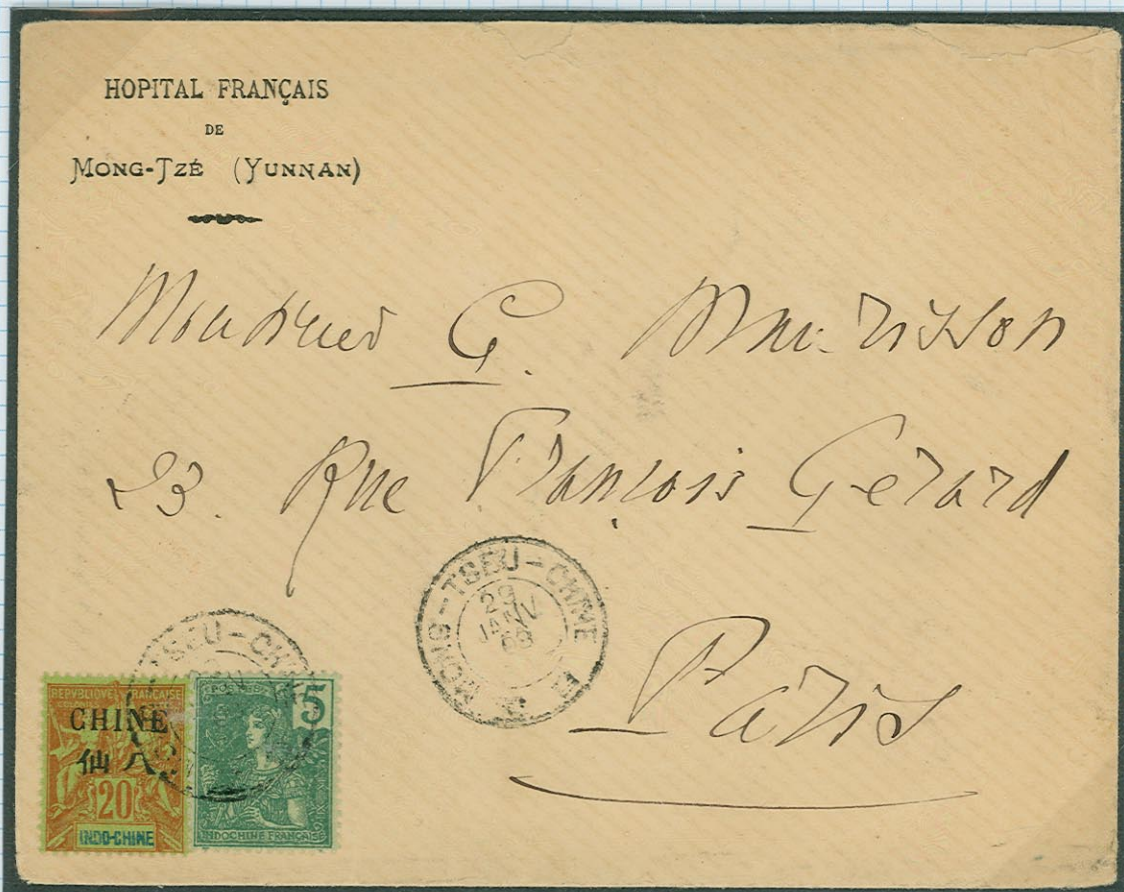 HOPITAL FRANÇAIS
DE
MONG-TZÉ (YUNNAN)
Monsieur G.
23. Rue François Gérard
Paris
MONG-TSEU-CHINE
29
JANV
TSEU-CH
REPVBLIQVE FRANÇAISE
CHINE
仙八
20
INDO-CHINE
5
INDOCHINE FRANÇAISE